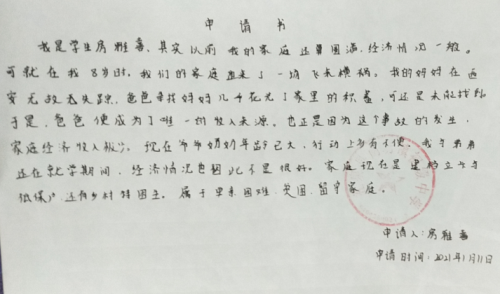 申请书
我是学生房雅香,其实以前我的家庭还算圆满,经济情况一般。
可就在我8岁时,我们的家庭迎来了一场飞来横祸。我的妈妈在西
安无故丢失踪,爸爸寻找妈妈几乎花光了家里的积蓄,可还是未能找到
于是,爸爸便成为了唯一的收入来源。也正是因为这个事故的发生,
家庭经济收入极少。现在爷爷奶奶年龄已大,行动上多有不便,我与弟弟
还在就学期间,经济情况也因此不是很好。家庭现在是建档立卡与
低保户,还有乡村特困生。属于单亲困难,贫困,留守家庭。
申请人:房雅香
申请时间:2021年1月11日